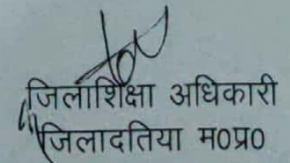 जिलाशिक्षा अधिकारी
जिलादतिया म०प्र०